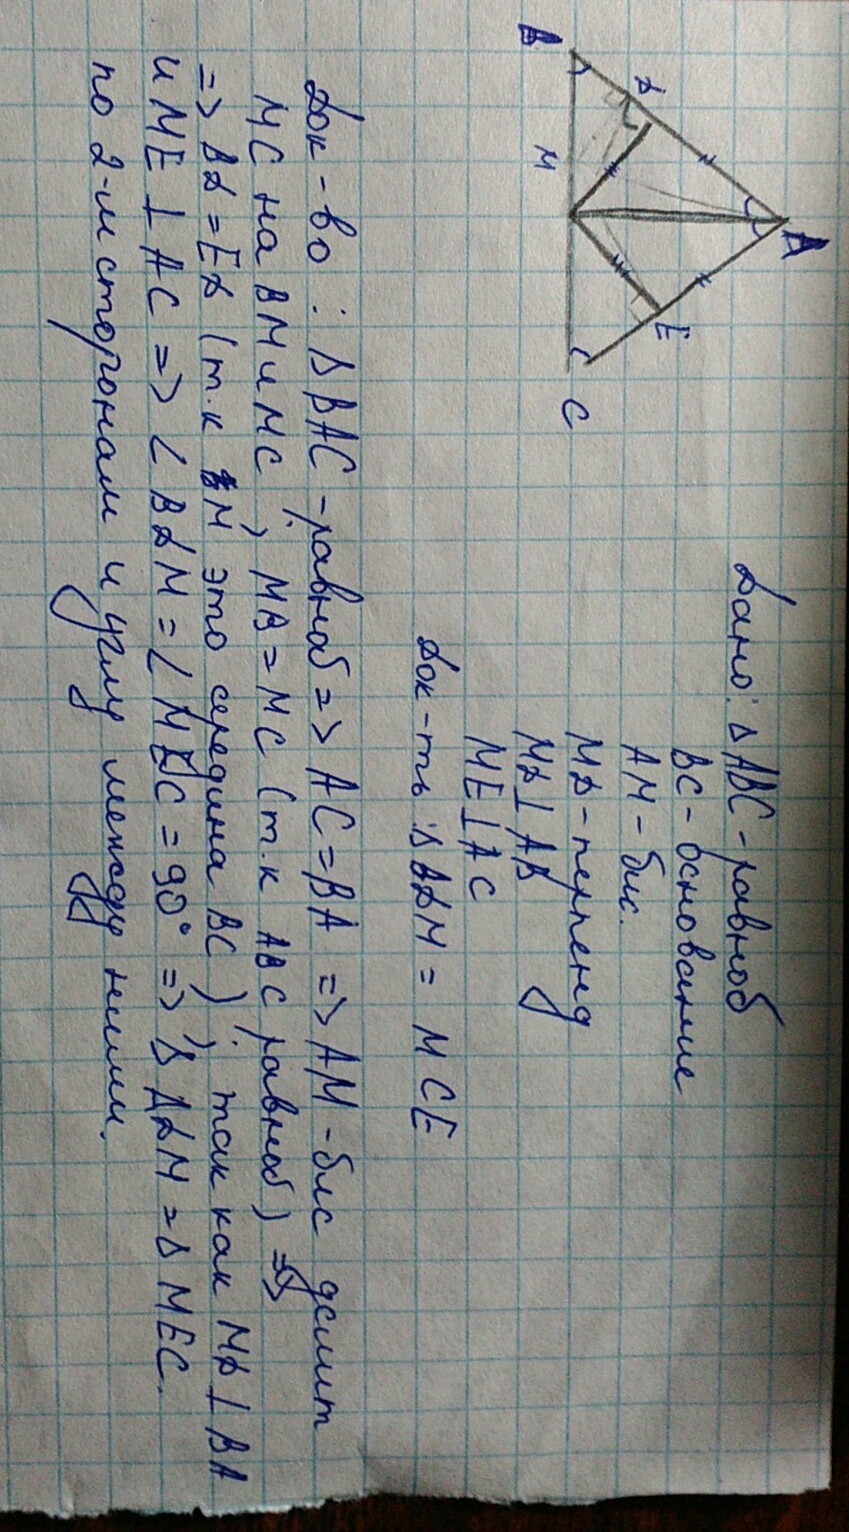 В
D
А
М
Е
С
Дано: Δ ABC - равноб
BC - основание
AM - бис.
MD - перпенд
MD ⊥ AB
ME ⊥ AC
Док-ть: Δ BDM = MCE
Док-во: Δ BAC - равноб => AC = BA => AM - бис делит
MC на BM и MC; MB = MC (т.к ABC равноб) =>
=> BD = ED (т.к M это середина BC); так как MD ⊥ BA
и ME ⊥ AC => ∠ BDM = ∠ MEC = 90° => Δ ADM = Δ MEC.
по 2-м сторонам и углу между ними.